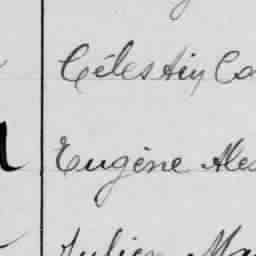 Célestin Co
Eugène Ale
Julien Ma